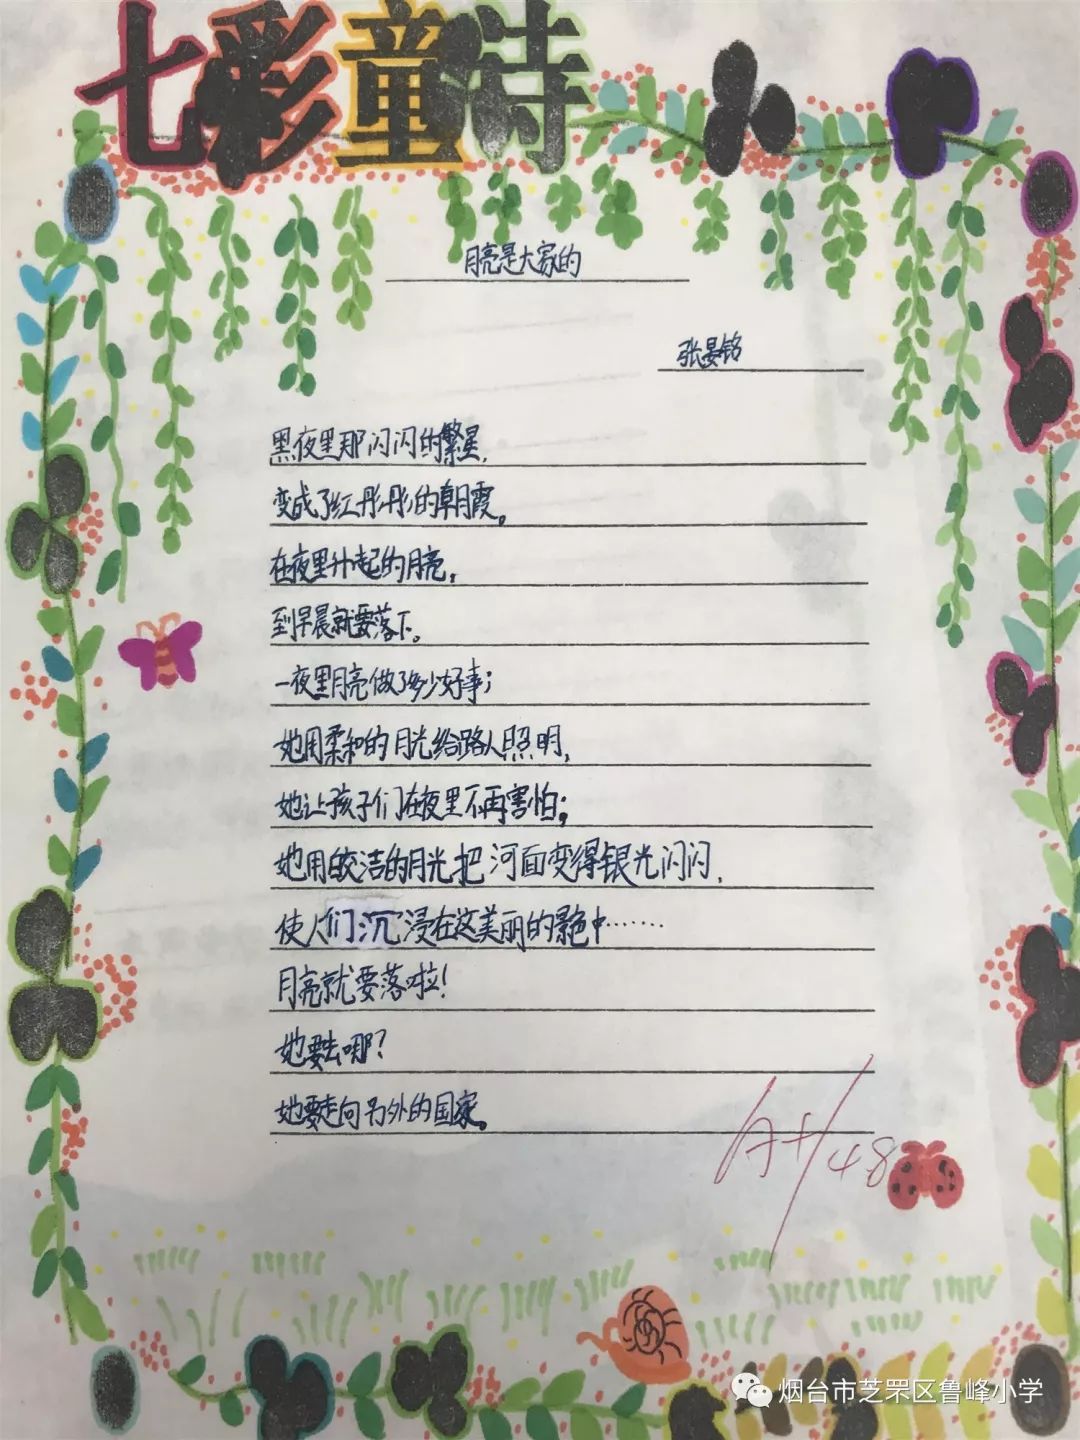 七彩童诗
月亮是大家的
张晏铭
黑夜里那闪闪的繁星,
变成了红彤彤的朝霞。
在夜里升起的月亮,
到早晨就要落下。
一夜里月亮做了多少好事;
她用柔和的月光给路人照明,
她让孩子们在夜里不再害怕;
她用皎洁的月光把河面变得银光闪闪,
使人们沉浸在这美丽的景色中……
月亮就要落啦!
她要去哪?
她要走向另外的国家。
A+/48
烟台市芝罘区鲁峰小学